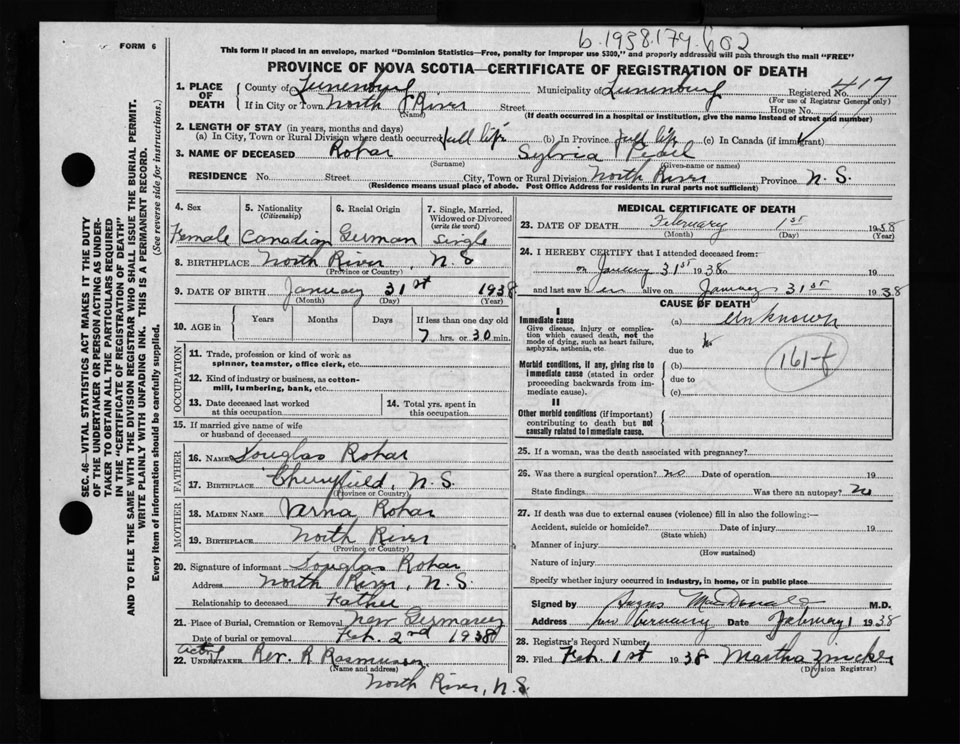 b.1938.174.602
FORM 6
This form if placed in an envelope, marked "Dominion Statistics—Free, penalty for improper use $300," and properly addressed will pass through the mail "FREE"
PROVINCE OF NOVA SCOTIA—CERTIFICATE OF REGISTRATION OF DEATH
1. PLACE OF DEATH
County of Lunenburg Municipality of Lunenburg Registered No. 417
(For use of Registrar General only)
If in City or Town North River Street House No.
(Name) (If death occurred in a hospital or institution, give the name instead of street and number)
2. LENGTH OF STAY (in years, months and days)
(a) In City, Town or Rural Division where death occurred full life (b) In Province full life (c) In Canada (if immigrant)
3. NAME OF DECEASED Rohar Sylvia
(Surname) (Given name or names)
RESIDENCE No. Street City, Town or Rural Division North River Province N. S.
(Residence means usual place of abode. Post Office Address for residents in rural parts not sufficient)
4. Sex
Female
5. Nationality
(Citizenship)
Canadian
6. Racial Origin
German
7. Single, Married, Widowed or Divorced
(write the word)
Single
8. BIRTHPLACE North River, N. S
(Province or Country)
9. DATE OF BIRTH January 31st 1938
(Month) (Day) (Year)
10. AGE in Years Months Days If less than one day old
7 hrs. or 30 min.
OCCUPATION
11. Trade, profession or kind of work as spinner, teamster, office clerk, etc.
12. Kind of industry or business, as cotton-mill, lumbering, bank, etc.
13. Date deceased last worked at this occupation
14. Total yrs. spent in this occupation
15. If married give name of wife or husband of deceased
FATHER
16. NAME Douglas Rohar
17. BIRTHPLACE Cherryfield, N. S.
(Province or Country)
MOTHER
18. MAIDEN NAME Verna Rohar
19. BIRTHPLACE North River
(Province or Country)
20. Signature of informant Douglas Rohar
Address North River, N. S.
Relationship to deceased Father
21. Place of Burial, Cremation or Removal New Germany
Date of burial or removal Feb. 2nd 1938
22. UNDERTAKER Rev. R Rasmussen
(Name and address)
North River, N. S.
MEDICAL CERTIFICATE OF DEATH
23. DATE OF DEATH February 1st 1938
(Month) (Day) (Year)
24. I HEREBY CERTIFY that I attended deceased from:
on January 31st 1938 to 19
and last saw h er alive on January 31st 1938
CAUSE OF DEATH
I
Immediate cause
Give disease, injury or complication which caused death, not the mode of dying, such as heart failure, asphyxia, asthenia, etc.
(a) Unknown
due to
Morbid conditions, if any, giving rise to immediate cause (stated in order proceeding backwards from immediate cause).
(b)
due to
(c)
II
Other morbid conditions (if important) contributing to death but not causally related to immediate cause.
25. If a woman, was the death associated with pregnancy?
26. Was there a surgical operation? no Date of operation 19
State findings Was there an autopsy? no
27. If death was due to external causes (violence) fill in also the following:—
Accident, suicide or homicide? Date of injury 19
(State which)
Manner of injury
(How sustained)
Nature of injury
Specify whether injury occurred in industry, in home, or in public place
Signed by Angus MacDonald M.D.
Address New Germany Date February 1 1938
28. Registrar's Record Number
29. Filed Feb. 1st 1938 Martha Zinck
(Division Registrar)
SEC. 46—VITAL STATISTICS ACT MAKES IT THE DUTY
OF THE UNDERTAKER OR PERSON ACTING AS UNDERTAKER TO OBTAIN ALL THE PARTICULARS REQUIRED
IN THE "CERTIFICATE OF REGISTRATION OF DEATH"
AND TO FILE THE SAME WITH THE DIVISION REGISTRAR WHO SHALL ISSUE THE BURIAL PERMIT.
WRITE PLAINLY WITH UNFADING INK. THIS IS A PERMANENT RECORD.
Every item of information should be carefully supplied. (See reverse side for instructions.)